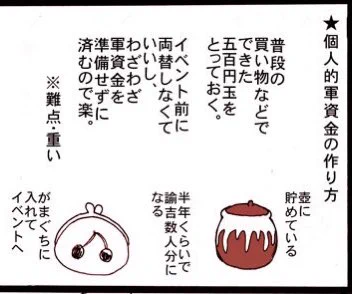 ★個人的軍資金の作り方
普段の
買い物などで
できた
五百円玉を
とっておく。
イベント前に
両替しなくて
いいし、
わざわざ
軍資金を
準備せずに
済むので楽。
※難点・重い
壺に
貯めている
半年くらいで
諭吉数人分に
なる
がまぐちに
入れて
イベントへ